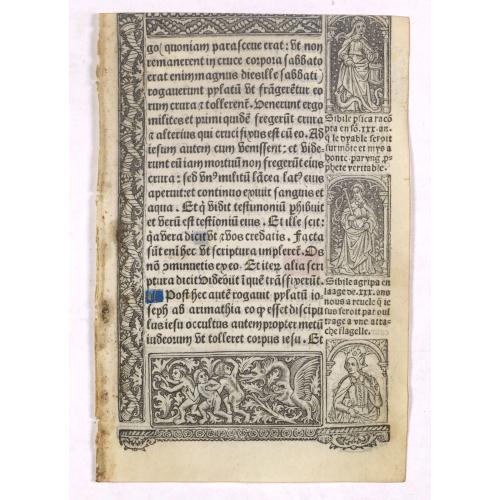 go( quoniam parasceue erat: vt non
remanerent in cruce corpora sabbato
erat enim magnus dies ille sabbati)
rogauerunt pylatū vt frāgerētur eo
rum crura ⁊ tollerent. Venerunt ergo
milites et primi quidē fregerūt crura
⁊ alterius qui crucifixus est cū eo. Ad
iesum autem cum venissent: et vide-
runt eū iam mortuū non fregerūt eius
crura: sed vnꝰ militū lācea latꝰ eius
aperuit: et continuo exiuit sanguis et
aqua. Et q̄ vidit testimoniū phibuit
et verū est testioniū eius. Et ille scit:
q̄a vera dicit vt ⁊ vos credatis. Facta
sūt eni hec vt scriptura implerēt. Os
nō ɔminuetis ex eo. Et iteꝝ alia scri
ptura dicit Videbūt ī quē trāsfixerūt.
Post hec autē rogauit pylatū io-
seph ab arimathia eo ꝙ esset discipu
lus iesu occultus autem propter metū
iudeorum vt tolleret corpus iesu. Et
Sibile psica racō
pta en sō .xxx. an.
q̄ le dyable seroit
surmōte et mys a
honte. par vng ꝓ-
phete veritable.
Sibile agripa en
laage de .xxx. ans
nous a reuele q̄ ie
sus seroit par oul
trage a vne atta-
che flagelle.